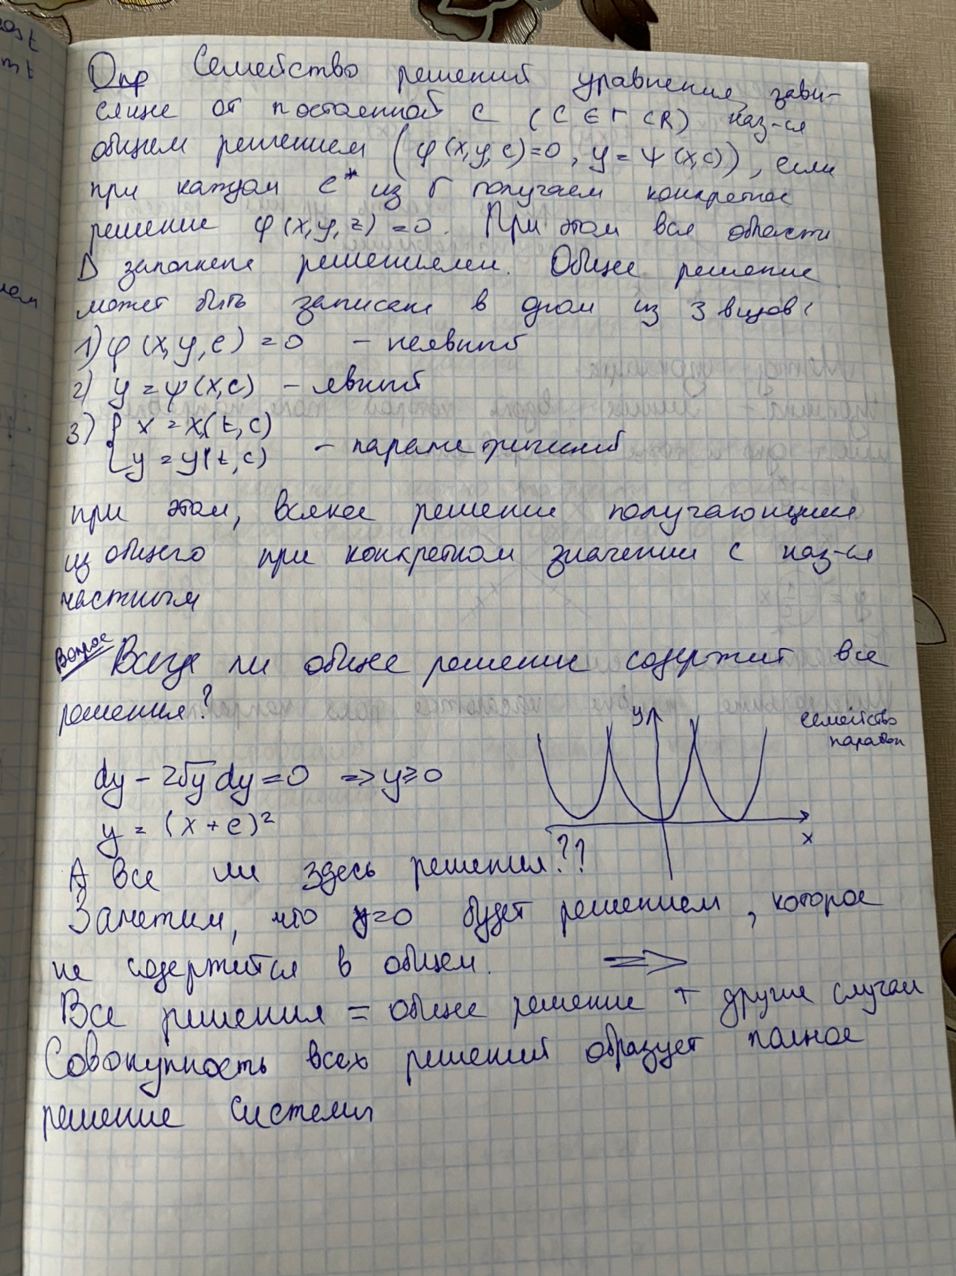 Опр Семейство решений уравнения, зави-
сящие от постоянной C (C ∈ Г ⊂ R) наз-ся
общем решением (φ(x,y,c)=0, y=ψ(x,c)), если
при каждом c* из Г получаем конкретное
решение φ(x,y,z)=0. При этом вся область
D заполнена решениями. Общее решение
может быть записана в одном из 3 видов:
1) φ(x,y,c)=0 – неявный
2) y=ψ(x,c) – явный
3) { x=x(t,c)
y=y(t,c) – параметрический
при этом, всякое решение получающиеся
из общего при конкретном значении c наз-ся
частным
Вопрос Всегда ли общее решение содержит все
решения?
y
семейство
парабол
dy – 2√y dy=0 => y≥0
y = (x+c)²
x
А все ли здесь решения??
Заметим, что y=0 будет решением, которое
не содержится в общем. =>
Все решения = общее решение + другие случаи
Совокупность всех решений образует полное
решение системы